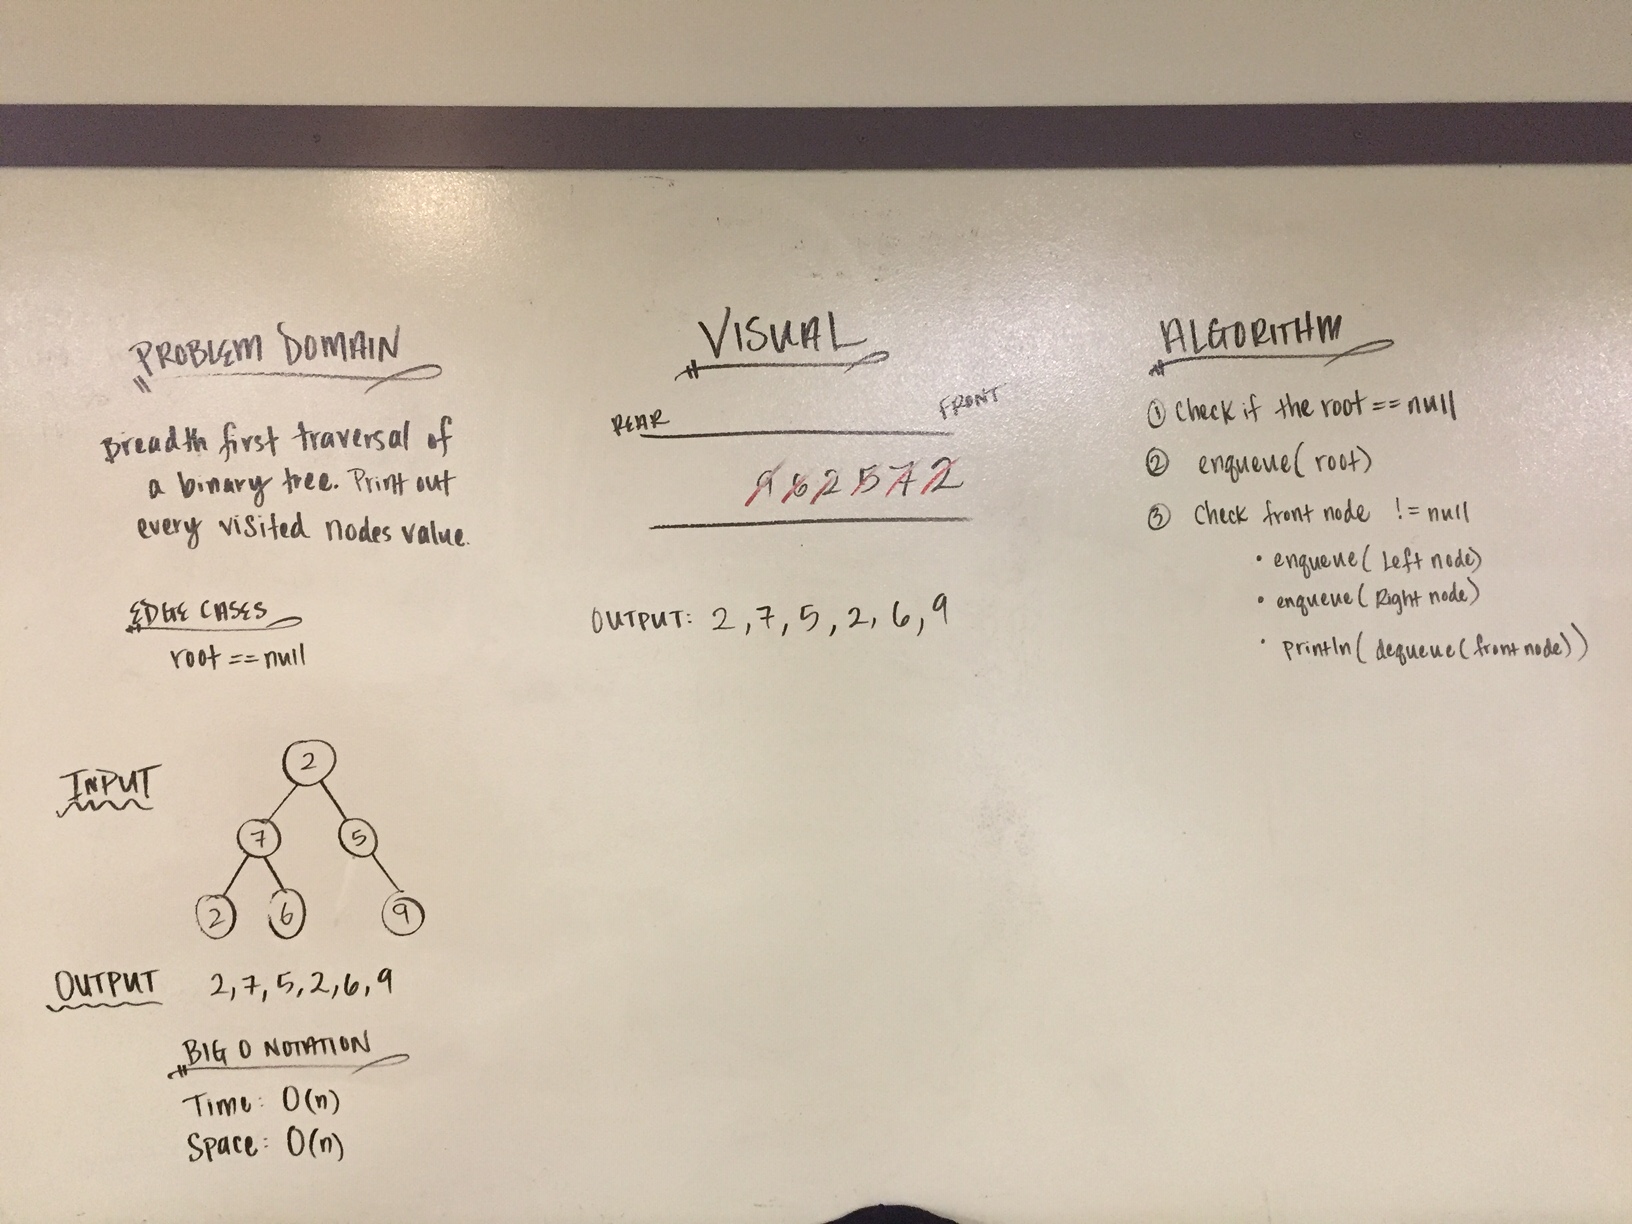 PROBLEM DOMAIN
Breadth first traversal of
a binary tree. Print out
every visited nodes value.
EDGE CASES
root == null
INPUT
2
7 5
2 6 9
OUTPUT 2,7,5,2,6,9
BIG O NOTATION
Time: O(n)
Space: O(n)
VISUAL
REAR FRONT
9 6 2 5 7 2
OUTPUT: 2,7,5,2,6,9
ALGORITHM
① Check if the root == null
② enqueue( root)
③ Check front node != null
• enqueue( Left node)
• enqueue( Right node)
• println( dequeue( front node))